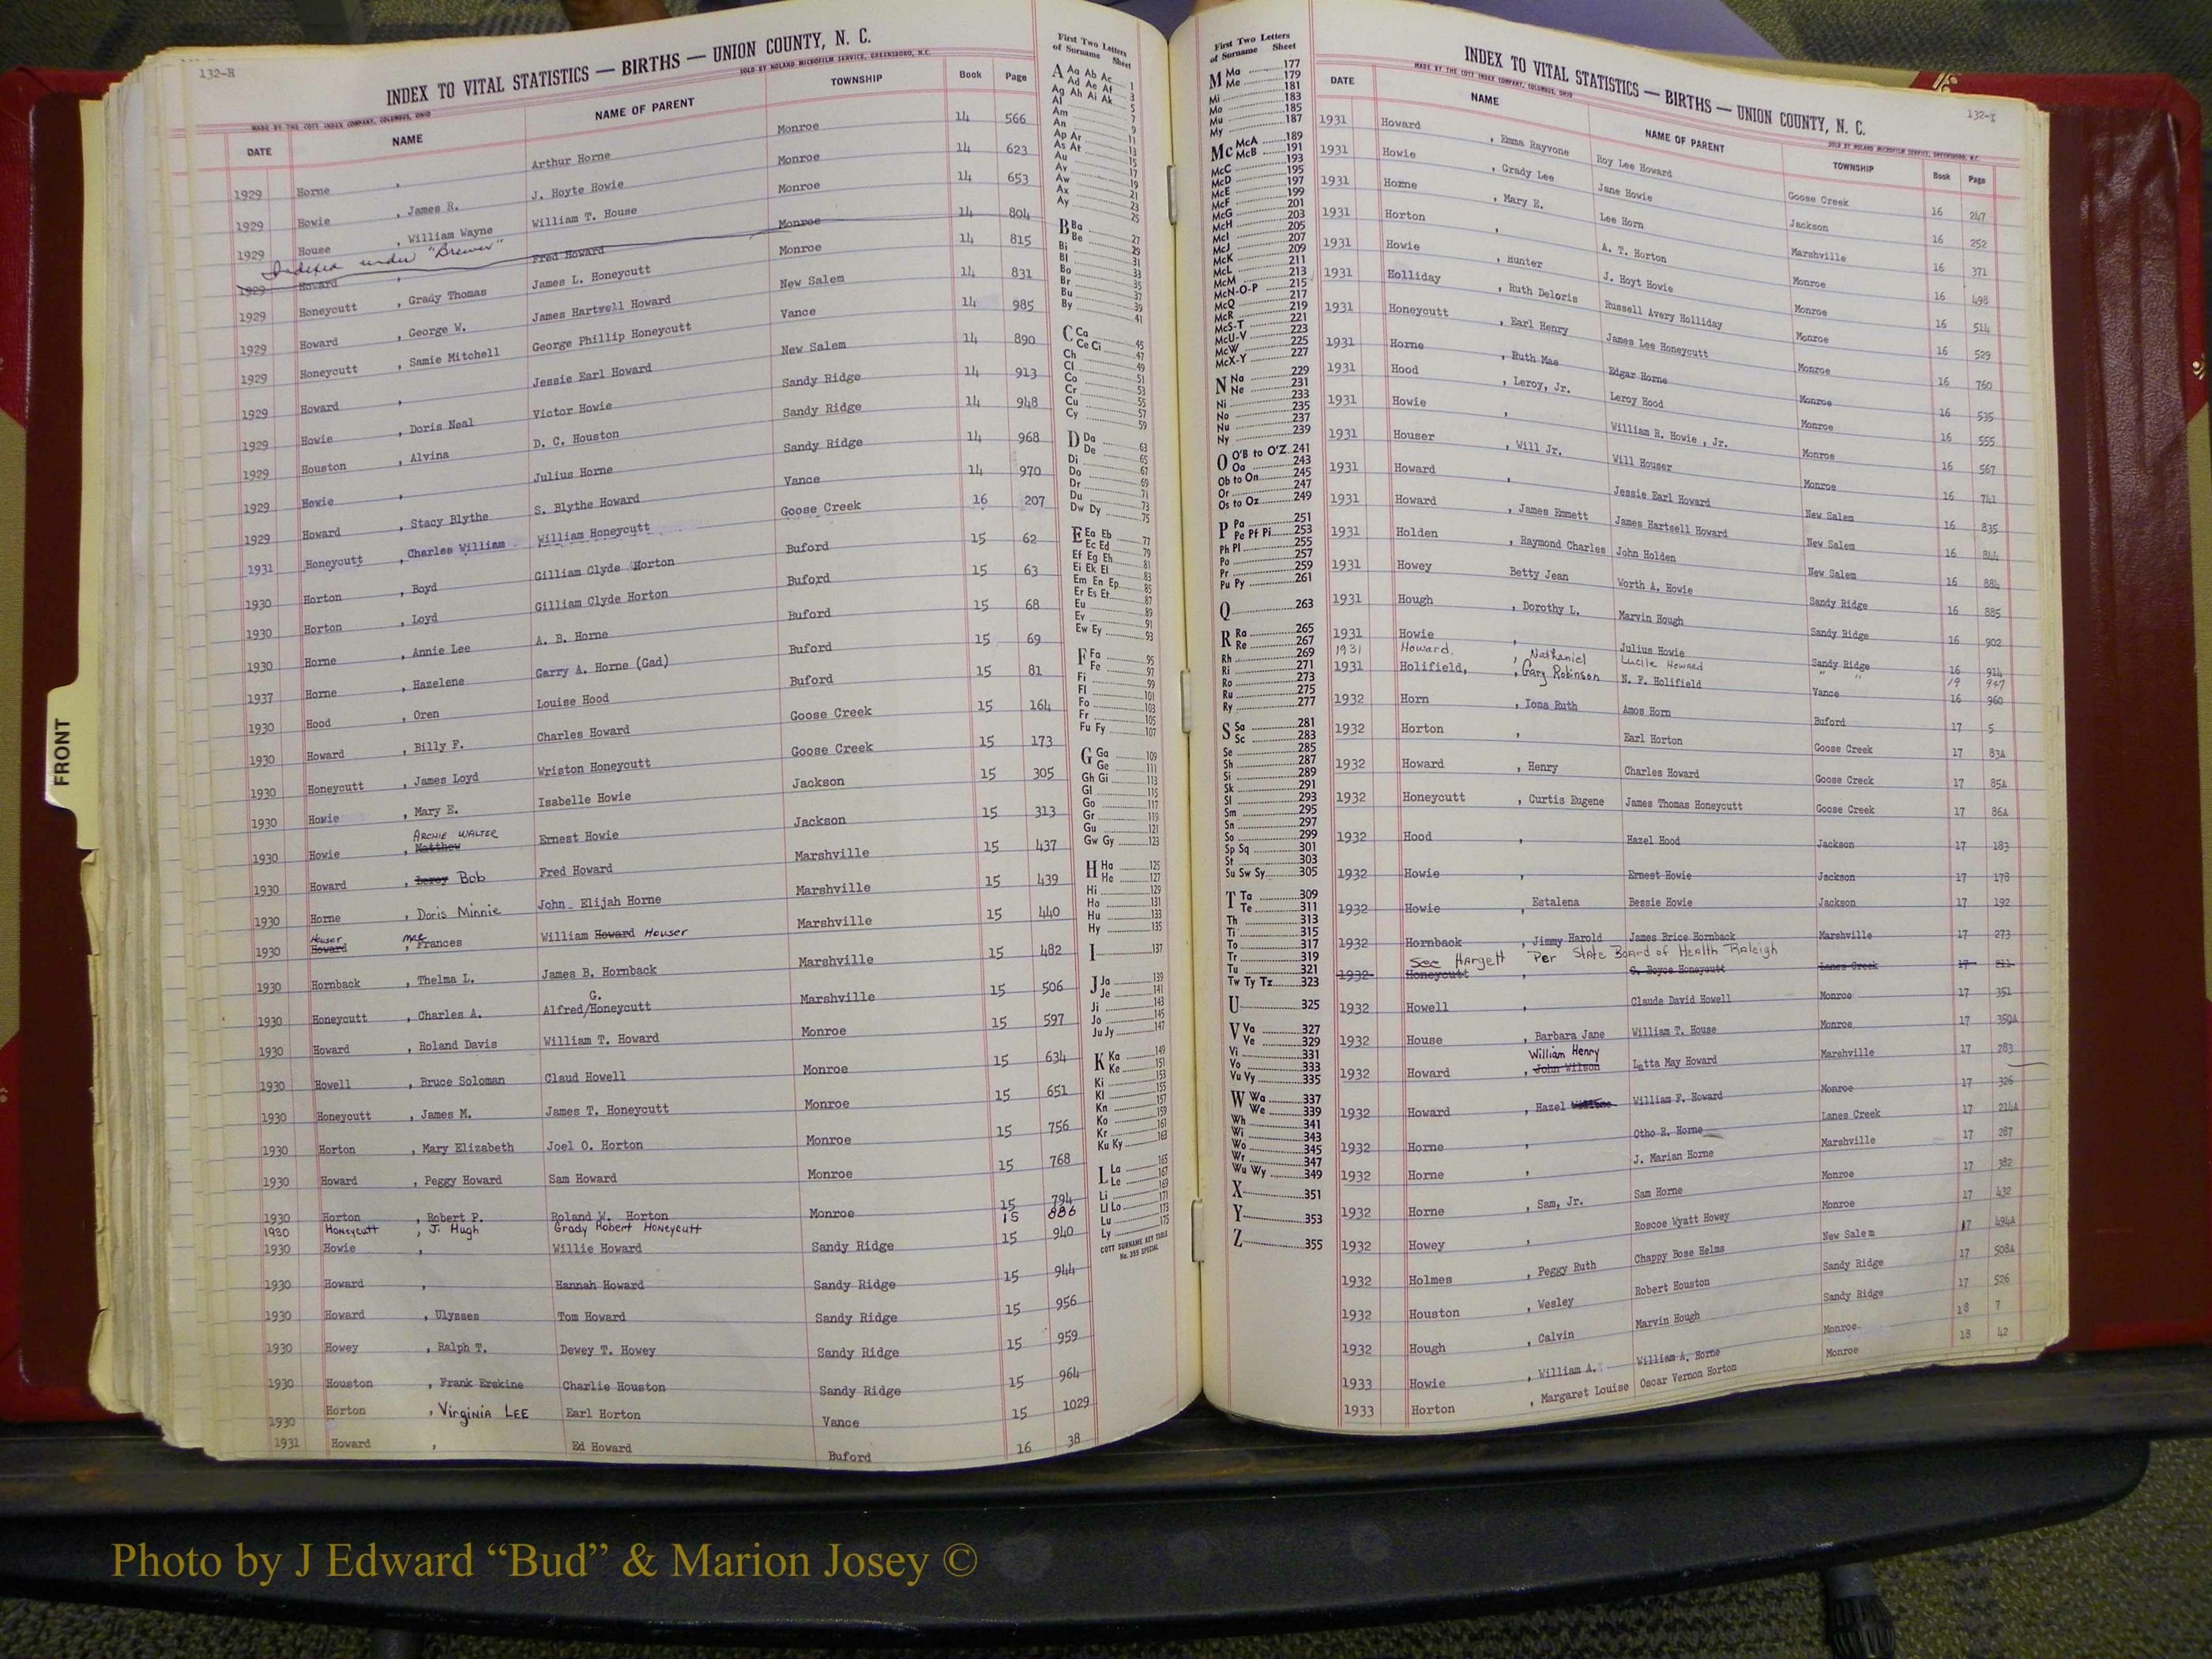 132-H
INDEX TO VITAL STATISTICS — BIRTHS — UNION COUNTY, N. C.
MADE BY THE COTT INDEX COMPANY, COLUMBUS, OHIO SOLD BY NOLAND MICROFILM SERVICE, GREENSBORO, N.C.
DATE NAME NAME OF PARENT TOWNSHIP Book Page
1929 Horne , Arthur Horne Monroe 14 566
1929 Howie , James R. J. Hoyte Howie Monroe 14 623
1929 House , William Wayne William T. House Monroe 14 653
Indexed under "Brewer"
1929 Howard , Fred Howard Monroe 14 804
1929 Honeycutt , Grady Thomas James L. Honeycutt Monroe 14 815
1929 Howard , George W. James Hartwell Howard New Salem 14 831
1929 Honeycutt , Samie Mitchell George Phillip Honeycutt Vance 14 985
1929 Howard , Jessie Earl Howard New Salem 14 890
1929 Howie , Doris Neal Victor Howie Sandy Ridge 14 913
1929 Houston , Alvina D. C. Houston Sandy Ridge 14 948
1929 Howie , Julius Horne Sandy Ridge 14 968
1929 Howard , Stacy Blythe S. Blythe Howard Vance 14 970
1931 Honeycutt , Charles William William Honeycutt Goose Creek 16 207
1930 Horton , Boyd Gilliam Clyde Horton Buford 15 62
1930 Horton , Loyd Gilliam Clyde Horton Buford 15 63
1930 Horne , Annie Lee A. B. Horne Buford 15 68
1937 Horne , Hazelene Garry A. Horne (Gad) Buford 15 69
1930 Hood , Oren Louise Hood Buford 15 81
1930 Howard , Billy F. Charles Howard Goose Creek 15 164
1930 Honeycutt , James Loyd Wriston Honeycutt Goose Creek 15 173
1930 Howie , Mary E. Isabelle Howie Jackson 15 305
ARCHIE WALTER
1930 Howie , Matthew Ernest Howie Jackson 15 313
1930 Howard , Leroy Bob Fred Howard Marshville 15 437
1930 Horne , Doris Minnie John Elijah Horne Marshville 15 439
Houser Mae
1930 Howard , Frances William Howard Houser Marshville 15 440
1930 Hornback , Thelma L. James B. Hornback Marshville 15 482
G.
1930 Honeycutt , Charles A. Alfred/Honeycutt Marshville 15 506
1930 Howard , Roland Davis William T. Howard Monroe 15 597
1930 Howell , Bruce Soloman Claud Howell Monroe 15 634
1930 Honeycutt , James M. James T. Honeycutt Monroe 15 651
1930 Horton , Mary Elizabeth Joel O. Horton Monroe 15 756
1930 Howard , Peggy Howard Sam Howard Monroe 15 768
1930 Horton , Robert P. Roland W. Horton Monroe 15 794
1930 Honeycutt , J. Hugh Grady Robert Honeycutt 15 886
1930 Howie , Willie Howard Sandy Ridge 15 940
1930 Howard , Hannah Howard Sandy Ridge 15 944
1930 Howard , Ulysses Tom Howard Sandy Ridge 15 956
1930 Howey , Ralph T. Dewey T. Howey Sandy Ridge 15 959
1930 Houston , Frank Erskine Charlie Houston Sandy Ridge 15 964
1930 Horton , Virginia LEE Earl Horton Vance 15 1029
1931 Howard , Ed Howard Buford 16 38
FRONT
First Two Letters
of Surname Sheet
A Aa Ab Ac 1
Ad Ae Af 3
Ag Ah Ai Ak 5
Al 7
Am 9
An 11
Ap Ar 13
As At 15
Au 17
Av 19
Aw 21
Ax 23
Ay 25
B Ba 27
Be 29
Bi 31
Bl 33
Bo 35
Br 37
Bu 39
By 41
C Ca 45
Ce Ci 47
Ch 49
Cl 51
Co 53
Cr 55
Cu 57
Cy 59
D Da 63
De 65
Di 67
Do 69
Dr 71
Du 73
Dw Dy 75
E Ea Eb 77
Ec Ed 79
Ef Eg Eh 81
Ei Ek El 83
Em En Ep 85
Er Es Et 87
Eu 89
Ev 91
Ew Ey 93
F Fa 95
Fe 97
Fi 99
Fl 101
Fo 103
Fr 105
Fu Fy 107
G Ga 109
Ge 111
Gh Gi 113
Gl 115
Go 117
Gr 119
Gu 121
Gw Gy 123
H Ha 125
He 127
Hi 129
Ho 131
Hu 133
Hy 135
I 137
J Ja 139
Je 141
Ji 143
Jo 145
Ju Jy 147
K Ka 149
Ke 151
Ki 153
Kl 155
Kn 157
Ko 159
Kr 161
Ku Ky 163
L La 165
Le 167
Li 169
Ll Lo 171
Lu 173
Ly 175
COTT SURNAME KEY TABLE
No. 355 SPECIAL
First Two Letters
of Surname Sheet
M Ma 177
Me 179
Mi 181
Mo 183
Mu 185
My 187
Mc McA 189
McB 191
McC 193
McD 195
McE 197
McF 199
McG 201
McH 203
McI 205
McJ 207
McK 209
McL 211
McM 213
McN-O-P 215
McQ 217
McR 219
McS-T 221
McU-V 223
McW 225
McX-Y 227
N Na 229
Ne 231
Ni 233
No 235
Nu 237
Ny 239
O O'B to O'Z 241
Oa 243
Ob to On 245
Or 247
Os to Oz 249
P Pa 251
Pe Pf Pi 253
Ph Pl 255
Po 257
Pr 259
Pu Py 261
Q 263
R Ra 265
Re 267
Rh 269
Ri 271
Ro 273
Ru 275
Ry 277
S Sa 281
Sc 283
Se 285
Sh 287
Si 289
Sk 291
Sl 293
Sm 295
Sn 297
So 299
Sp Sq 301
St 303
Su Sw Sy 305
T Ta 309
Te 311
Th 313
Ti 315
To 317
Tr 319
Tu 321
Tw Ty Tz 323
U 325
V Va 327
Ve 329
Vi 331
Vo 333
Vu Vy 335
W Wa 337
We 339
Wh 341
Wi 343
Wo 345
Wr 347
Wu Wy 349
X 351
Y 353
Z 355
INDEX TO VITAL STATISTICS — BIRTHS — UNION COUNTY, N. C.
132-I
MADE BY THE COTT INDEX COMPANY, COLUMBUS, OHIO SOLD BY NOLAND MICROFILM SERVICE, GREENSBORO, N.C.
DATE NAME NAME OF PARENT TOWNSHIP Book Page
1931 Howard , Emma Rayvone Roy Lee Howard Goose Creek 16 247
1931 Howie , Grady Lee Jane Howie Jackson 16 252
1931 Horne , Mary E. Lee Horn Marshville 16 371
1931 Horton , A. T. Horton Monroe 16 498
1931 Howie , Hunter J. Hoyt Howie Monroe 16 514
1931 Holliday , Ruth Deloris Russell Avery Holliday Monroe 16 529
1931 Honeycutt , Earl Henry James Lee Honeycutt Monroe 16 760
1931 Horne , Ruth Mae Edgar Horne Monroe 16 535
1931 Hood , Leroy, Jr. Leroy Hood Monroe 16 555
1931 Howie , William R. Howie , Jr. Monroe 16 567
1931 Houser , Will Jr. Will Houser Monroe 16 741
1931 Howard , Jessie Earl Howard New Salem 16 835
1931 Howard , James Emmett James Hartsell Howard New Salem 16 844
1931 Holden , Raymond Charles John Holden New Salem 16 884
1931 Howey Betty Jean Worth A. Howie Sandy Ridge 16 885
1931 Hough , Dorothy L. Marvin Hough Sandy Ridge 16 902
1931 Howie , Julius Howie Sandy Ridge 16 914
1931 Howard, , Nathaniel Lucile Howard " " 19 947
1931 Holifield, , Gary Robinson N. F. Holifield Vance 16 960
1932 Horn , Iona Ruth Amos Horn Buford 17 5
1932 Horton , Earl Horton Goose Creek 17 83A
1932 Howard , Henry Charles Howard Goose Creek 17 85A
1932 Honeycutt , Curtis Eugene James Thomas Honeycutt Goose Creek 17 86A
1932 Hood , Hazel Hood Jackson 17 183
1932 Howie , Ernest Howie Jackson 17 178
1932 Howie , Estalena Bessie Howie Jackson 17 192
1932 Hornback , Jimmy Harold James Brice Hornback Marshville 17 273
See Hargett Per State Board of Health Raleigh
1932 Honeycutt , Boyce Honeycutt Lanes Creek 17 211
1932 Howell , Claude David Howell Monroe 17 351
1932 House , Barbara Jane William T. House Monroe 17 350A
William Henry
1932 Howard , John Wilson Letta May Howard Marshville 17 283
1932 Howard , Hazel William F. Howard Monroe 17 326
1932 Horne , Otho R. Horne Lanes Creek 17 214A
1932 Horne , J. Marian Horne Marshville 17 287
1932 Horne , Sam, Jr. Sam Horne Monroe 17 382
1932 Howey , Roscoe Wyatt Howey Monroe 17 432
1932 Holmes , Peggy Ruth Chappy Bose Helms New Salem 17 494A
1932 Houston , Wesley Robert Houston Sandy Ridge 17 508A
1932 Hough , Calvin Marvin Hough Sandy Ridge 17 526
1933 Howie , William A. William A. Horne Monroe 18 7
1933 Horton , Margaret Louise Oscar Vernon Horton Monroe 18 42
Photo by J Edward “Bud” & Marion Josey ©